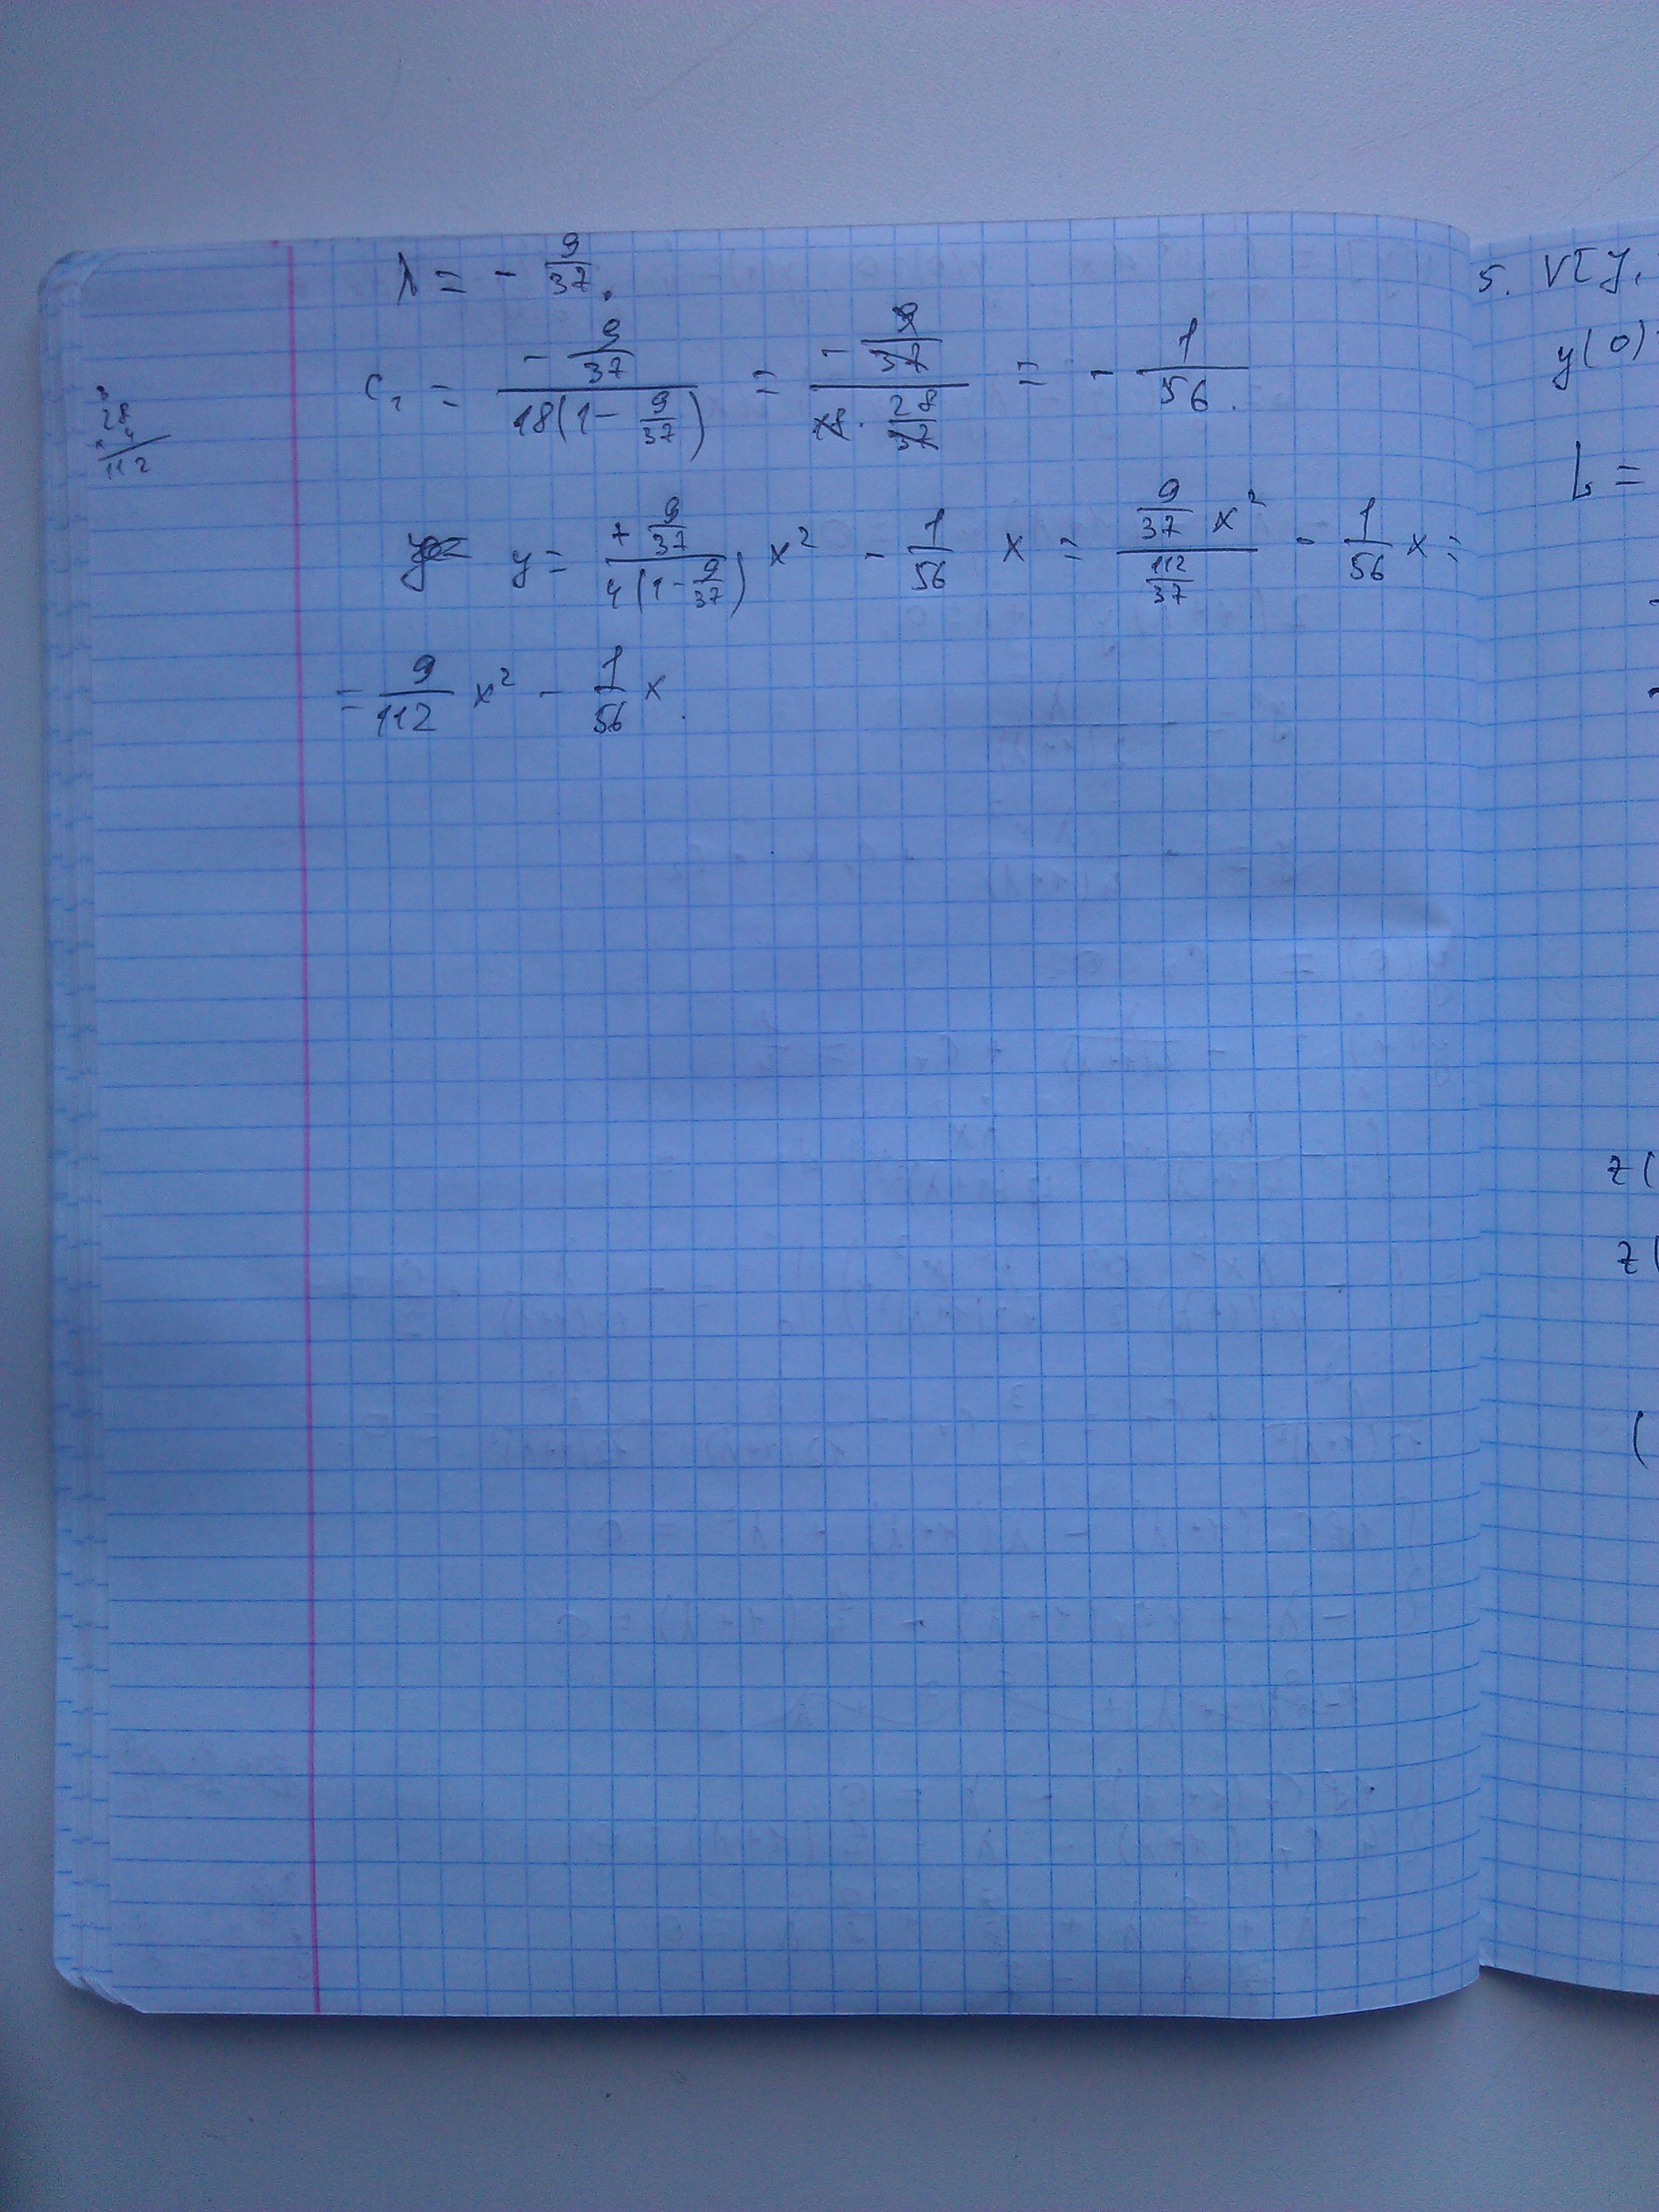 λ = - 9/37.
c₁ = (- 9/37)/(18(1 - 9/37)) = (- 9/37)/(18 · 28/37) = - 1/56.
28
× 4
112
y = (+ 9/37)/(4(1 - 9/37)) x² - 1/56 x = (9/37 x²)/(112/37) - 1/56 x =
= 9/112 x² - 1/56 x.
5. V[y,
y(0)
L =
z(
z(
(